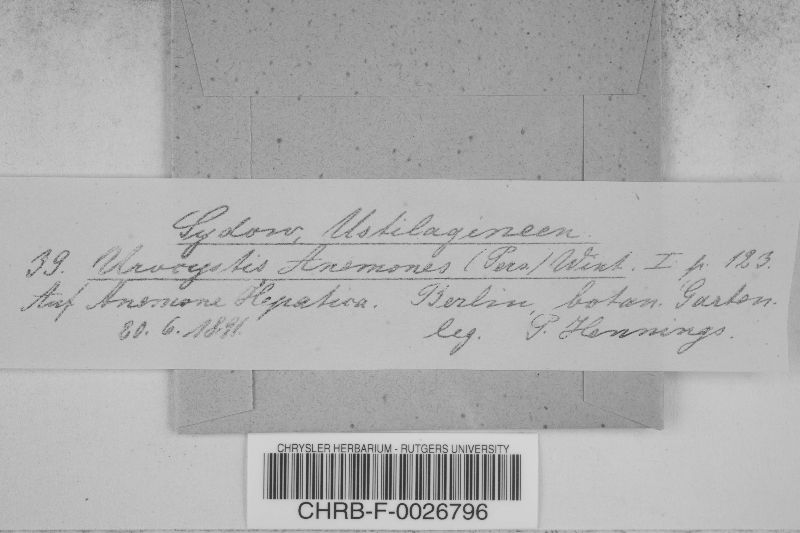 Sydow, Ustilagineen.
39. Urocystis Anemones (Pers.) Wint. I. p. 123.
Auf Anemone Hepatica. Berlin, botan. Garten.
20. 6. 1891. leg. P. Hennings.
CHRYSLER HERBARIUM - RUTGERS UNIVERSITY
CHRB-F-0026796